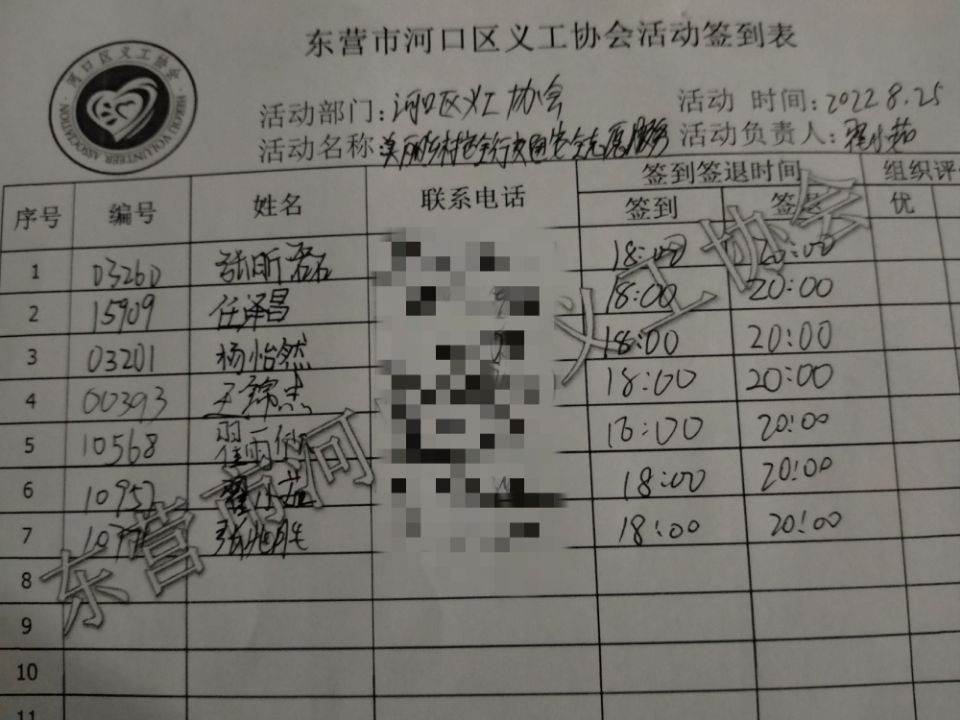 东营市河口区义工协会活动签到表
河口区义工协会
HEKOU VOLUNTEER ASSOCIATION
活动部门:河口区义工协会 活动 时间:2022 8.25
活动名称:美丽乡村安全行交通安全志愿服务 活动负责人:翟小茹
序号 编号 姓名 联系电话 签到签退时间 组织评
签到 签退 优
1 03260 张昕 18:00 20:00
2 15909 任泽昌 18:00 20:00
3 03201 杨怡然 18:00 20:00
4 00393 王锦杰 18:00 20:00
5 10568 翟雨 18:00 20:00
6 10952 翟小茹 18:00 20:00
7 张 18:00 20:00
8
9
10
11
东营市河口区义工协会